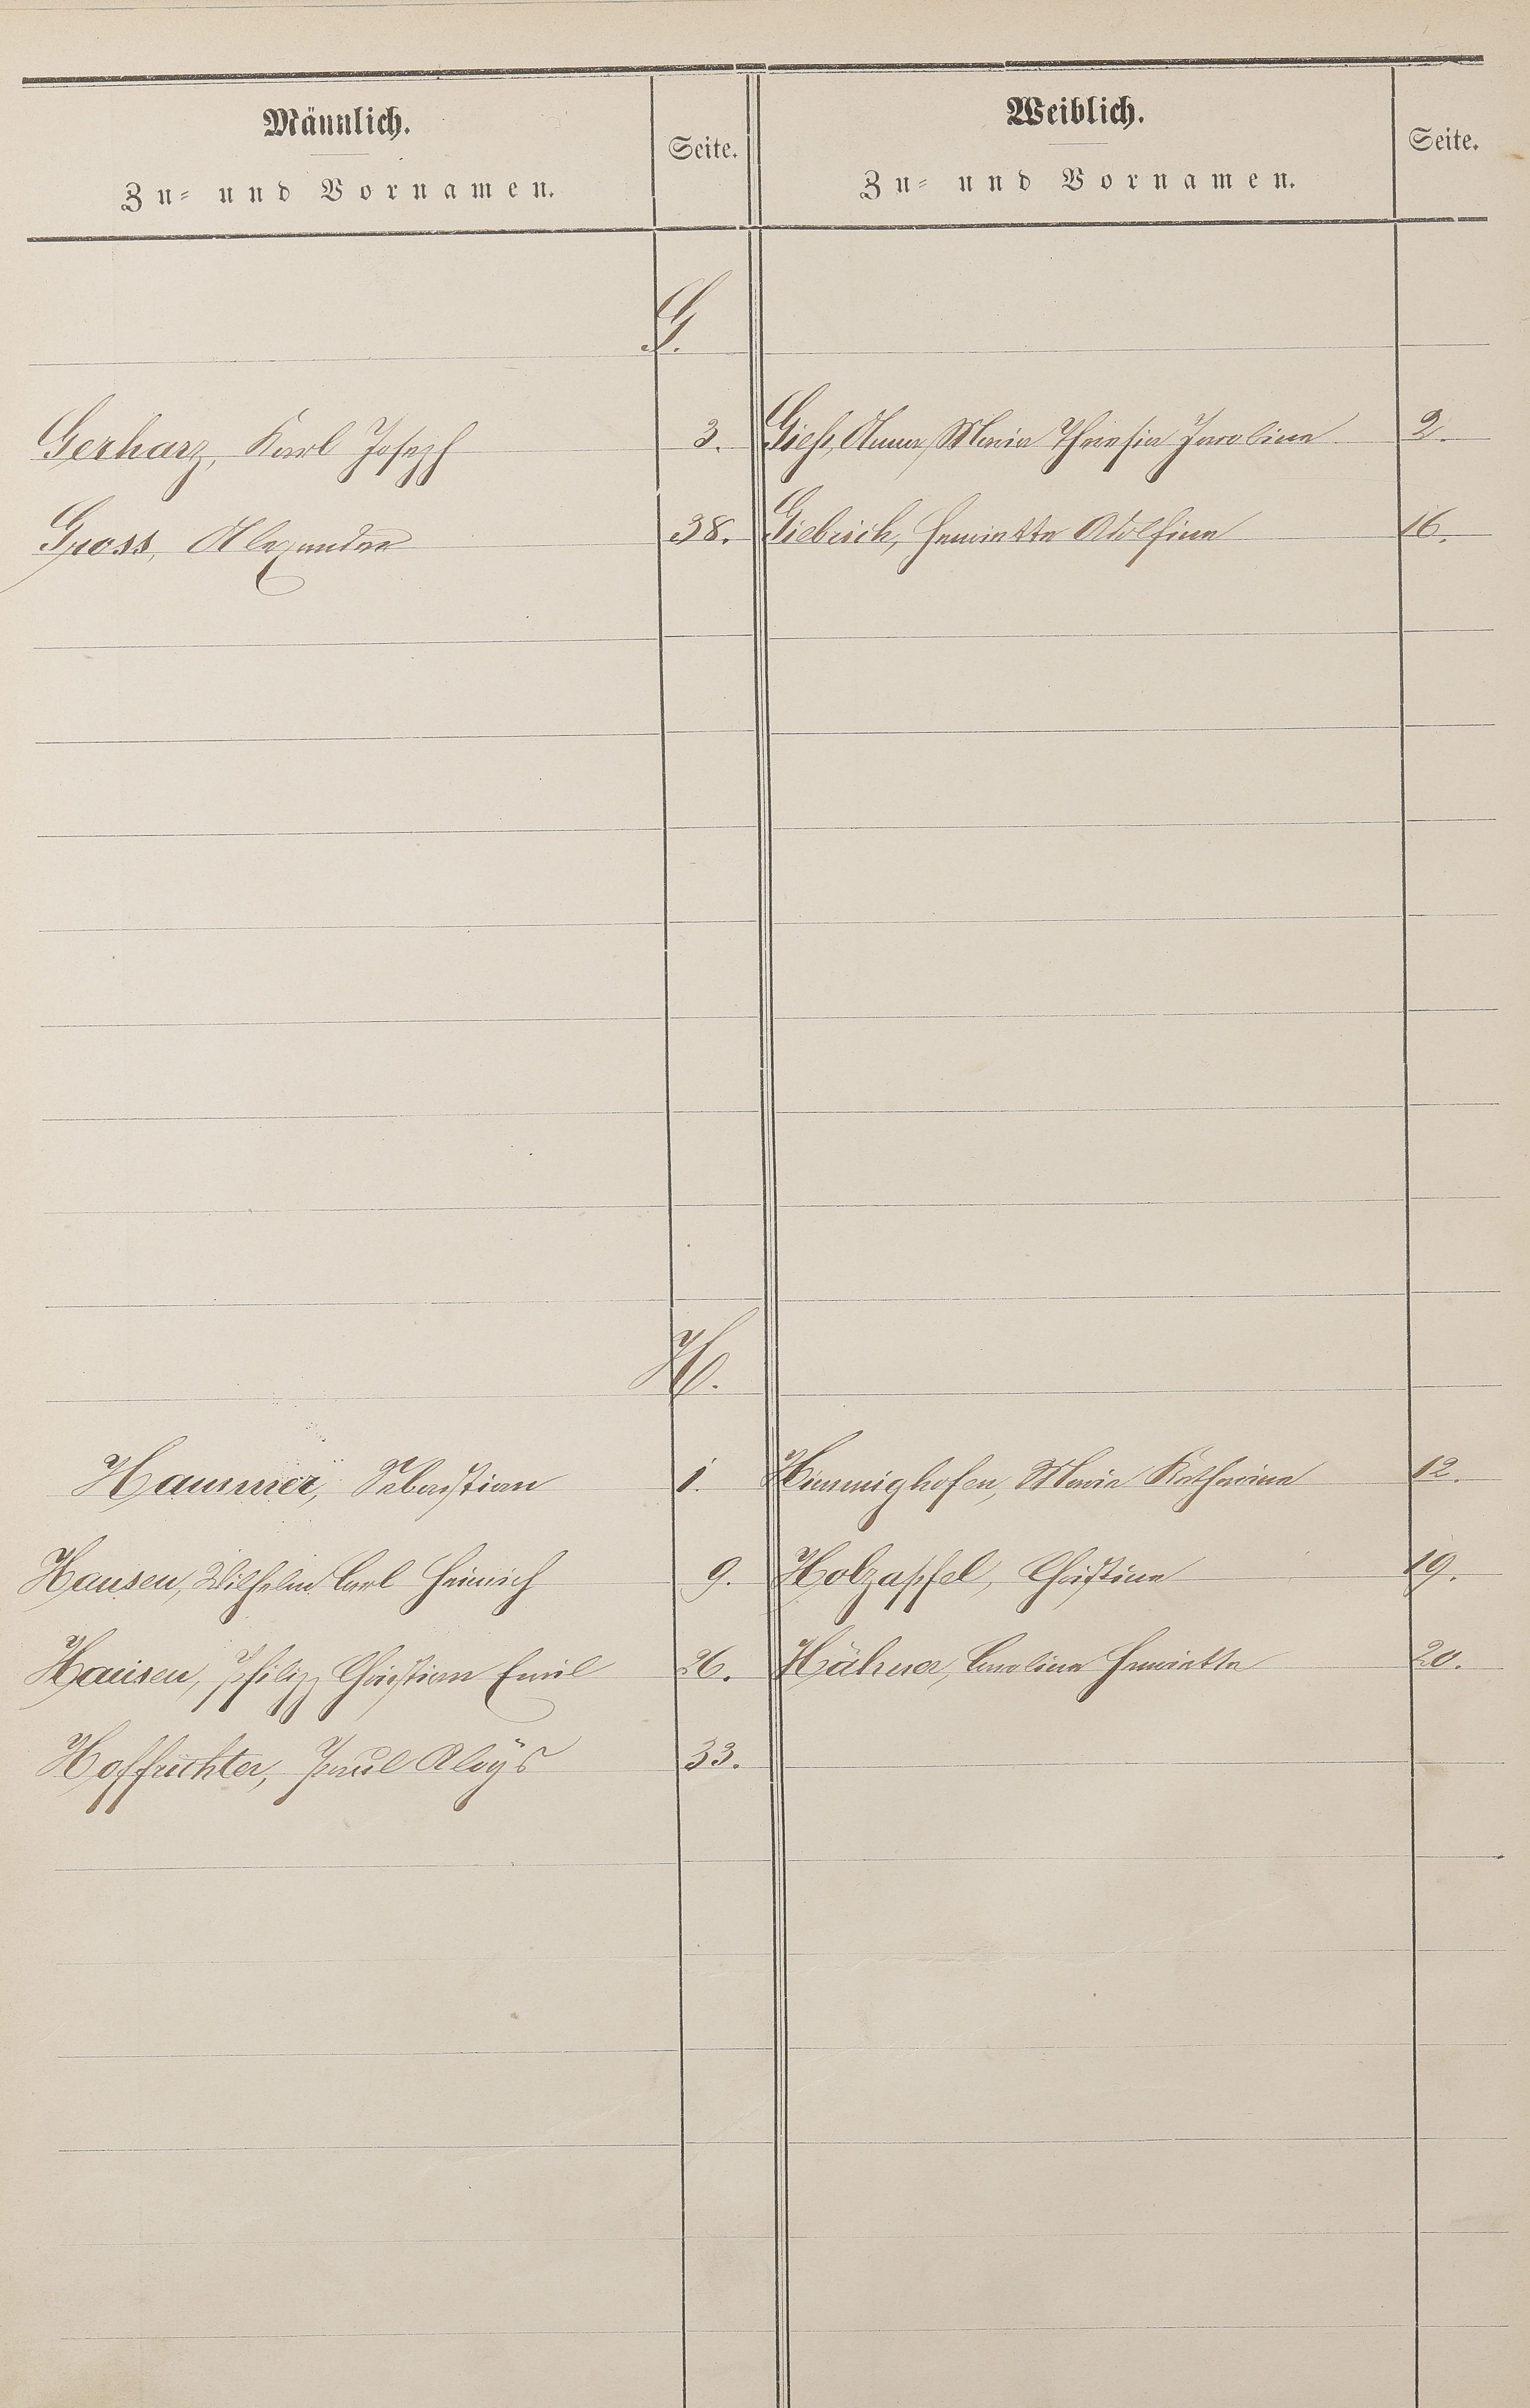 Männlich. Seite. Weiblich. Seite.
Zu- und Vornamen. Zu- und Vornamen.
G.
Gerharz, Karl Joseph 3. Gieß, Anna, Maria Theresia Jacobina 2.
Gross, Alexander 38. Giebrich, Henriette Adolfine 16.
H.
Hammer, Sebastian 1. Himmighofen, Maria Katharina 12.
Hansen, Wilhelm Carl Heinrich 9. Holzapfel, Christine 19.
Hansen, Philipp Christian Emil 26. Hähner, Carolina Henriette 20.
Hoffrichter, Paul Aloÿs 33.